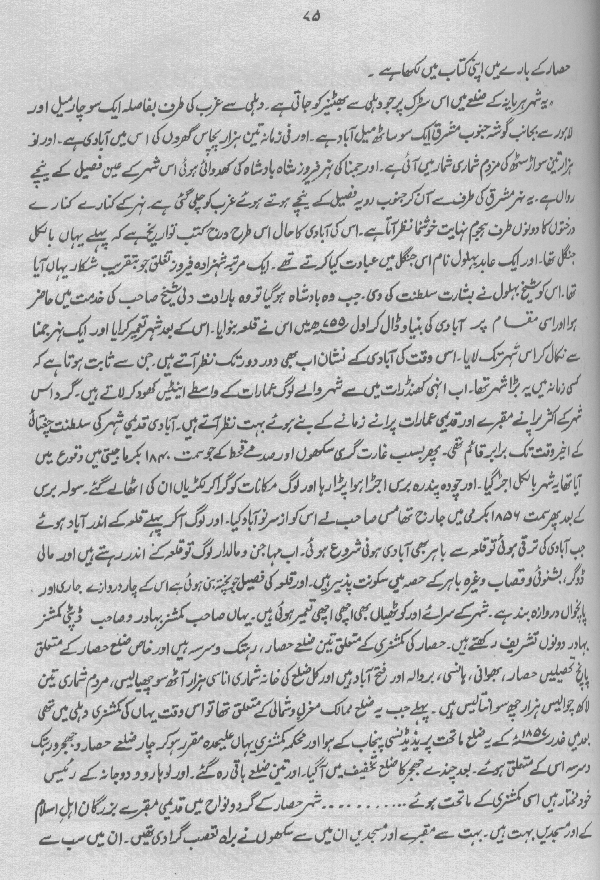 ۷۵
حصار کے بارے میں اپنی کتاب میں لکھا ہے۔
"یہ شہر ہریانہ کے ضلعے میں اس سڑک پر جو دہلی سے بھٹنیر کو جاتی ہے۔ دہلی سے غرب کی طرف بفاصلہ ایک سو چار میل اور
لاہور سے بجانب گوشہ جنوب مشرق ایک سو ساٹھ میل آباد ہے۔ اور فی زمانہ تین ہزار پچاس گھروں کی اس میں آبادی ہے۔ اور نو
ہزار تین سو اڑسٹھ کی مردم شماری شمار میں آئی ہے۔ اور جمنا کی نہر فیروز شاہ بادشاہ کی کھدوائی ہوئی اس شہر کے عین فصیل کے نیچے
رواں ہے۔ یہ نہر مشرق کی طرف سے آن کر جنوب رویہ فصیل کے نیچے ہوتے ہوئے غرب کو چلی گئی ہے۔ نہر کے کنارے کنارے
درختوں کا دونوں طرف ہجوم نہایت خوشنما نظر آتا ہے۔ اس کی آبادی کا حال اس طرح درج کتب تواریخ ہے کہ پہلے یہاں بالکل
جنگل تھا۔ اور ایک عابد بہلول نام اس جنگل میں عبادت کیا کرتے تھے۔ ایک مرتبہ شہزادہ فیروز تغلق جو بتقریب شکار یہاں آیا
تھا۔ اس کو شیخ بہلول نے بشارت سلطنت کی دی۔ جب وہ بادشاہ ہو گیا تو وہ بارادت دلی شیخ صاحب کی خدمت میں حاضر
ہوا اور اسی مقام پر آبادی کی بنیاد ڈال کر اول ۷۵۵ھ میں اس نے قلعہ بنوایا۔ اس کے بعد شہر تعمیر کرایا اور ایک نہر جمنا
سے نکال کر اس شہر تک لایا۔ اس وقت کی آبادی کے نشان اب بھی دور دور تک نظر آتے ہیں۔ جن سے ثابت ہوتا ہے کہ
کسی زمانہ میں یہ بڑا شہر تھا۔ اب انہی کھنڈرات میں سے شہر والے لوگ عمارات کے واسطے اینٹیں کھود کر لاتے ہیں۔ گرد اس
شہر کے اکثر پرانے مقبرے اور قدیمی عمارات پرانے زمانے کے بنے ہوئے بہت نظر آتے ہیں۔ آبادی قدیمی شہر کی سلطنت چغتائی
کے اخیر وقت تک برابر قائم تھی۔ پھر بسبب غارت گری سکھوں اور صدمے قحط کے جو سمت ۱۸۴۰ بکرماجیتی میں وقوع میں
آیا تھا یہ شہر بالکل اجڑ گیا۔ اور چودہ پندرہ برس اجڑا ہوا پڑا رہا اور لوگ مکانات کو گرا کر لکڑیاں ان کی اٹھا لے گئے۔ سولہ برس
کے بعد پھر سمت ۱۸۵۶ بکرمی میں جارج تھامس صاحب نے اس کو از سر نو آباد کیا۔ اور لوگ آ کر پہلے قلعہ کے اندر آباد ہوئے
جب آبادی کی ترقی ہوئی تو قلعہ سے باہر بھی آبادی ہونی شروع ہوئی۔ اب مہاجن و مالدار لوگ تو قلعہ کے اندر رہتے ہیں اور مالی
ڈوگر، بشنوئی و قصاب وغیرہ باہر کے حصہ میں سکونت پذیر ہیں۔ اور قلعہ کی فصیل جو پختہ بنی ہوئی ہے اس کے چار دروازے جاری اور
پانچواں دروازہ بند ہے۔ شہر کے سرائے اور کوٹھیاں بھی اچھی اچھی تعمیر ہوئی ہیں۔ یہاں صاحب کمشنر بہادر و صاحب ڈپٹی کمشنر
بہادر دونوں تشریف رکھتے ہیں۔ حصار کی کمشنری کے متعلق تین ضلعے حصار، رہتک و سرسہ ہیں اور خاص ضلع حصار کے متعلق
پانچ تحصیلیں حصار، بھوانی، ہانسی، بروالہ اور فتح آباد ہیں اور کل ضلع کی خانہ شماری اناسی ہزار آٹھ سو چھیالیس، مردم شماری تین
لاکھ چوالیس ہزار چھ سو انتالیس ہیں۔ پہلے جب یہ ضلع ممالک مغربی و شمالی کے متعلق تھا تو اس وقت یہاں کی کمشنری دہلی میں تھی
بعد میں غدر ۱۸۵۷ء کے یہ ضلع ماتحت پریذیڈنسی پنجاب کے ہوا اور محکمہ کمشنری یہاں علیحدہ مقرر ہو کر چار ضلعے حصار و جھجر و رہتک
و سرسہ اس کے متعلق ہوئے۔ بعد چندے جھجر کا ضلع تخفیف میں آ گیا۔ اور تین ضلعے باقی رہ گئے۔ اور لوہارو و دوجانہ کے رئیس
خود مختار ہیں اسی کمشنری کے ماتحت ہوئے۔۔۔۔۔۔۔۔۔۔ شہر حصار کے گرد و نواح میں قدیمی مقبرے بزرگان اہل اسلام
کے اور مسجدیں بہت ہیں۔ بہت سے مقبرے اور مسجدیں ان میں سے سکھوں نے براہ تعصب گرا دی تھیں۔ ان میں سب سے